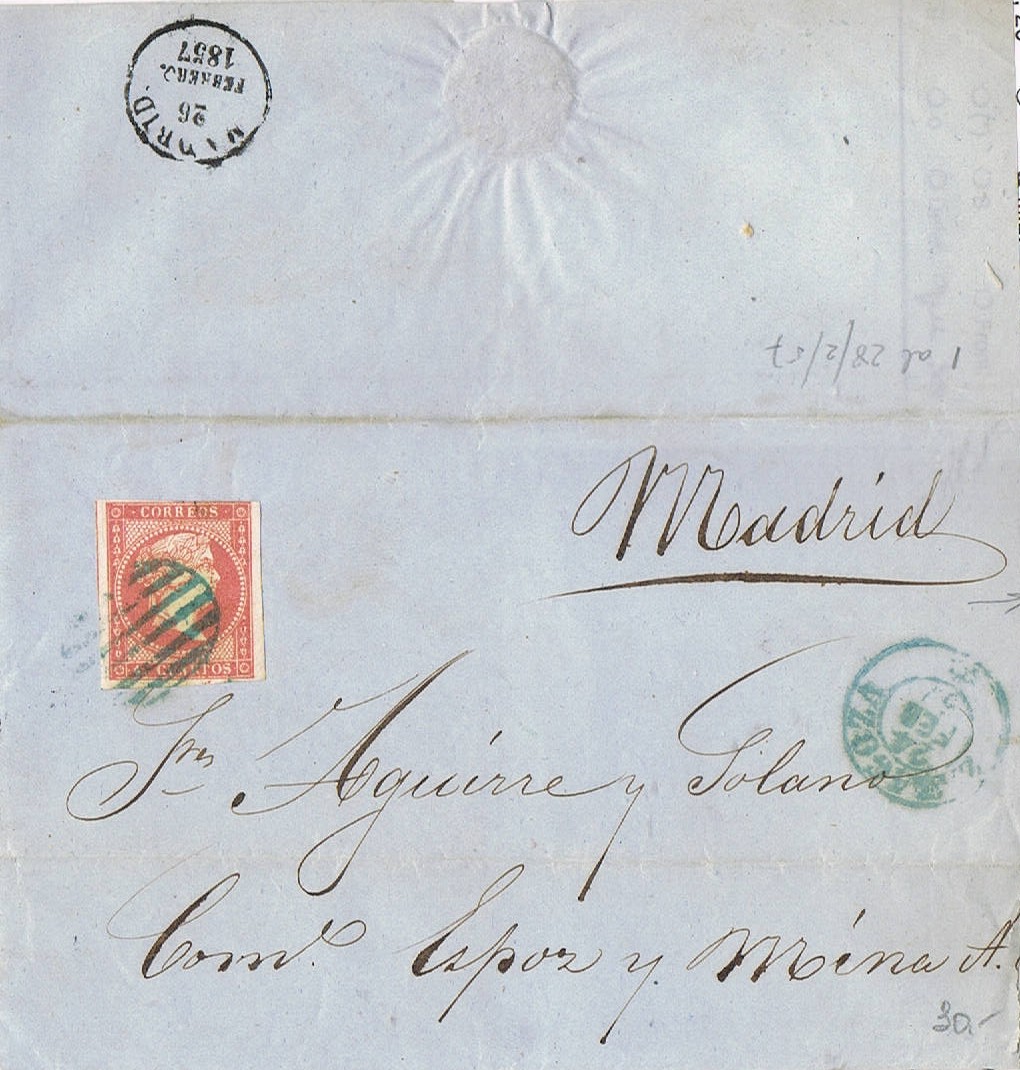 MADRID.
26
FEBRERO.
1857
1 al 28/2/57
Madrid
CORREOS
CUARTOS
Sres Aguirre y Solano
Como. Espoz y Mina A.
30.-